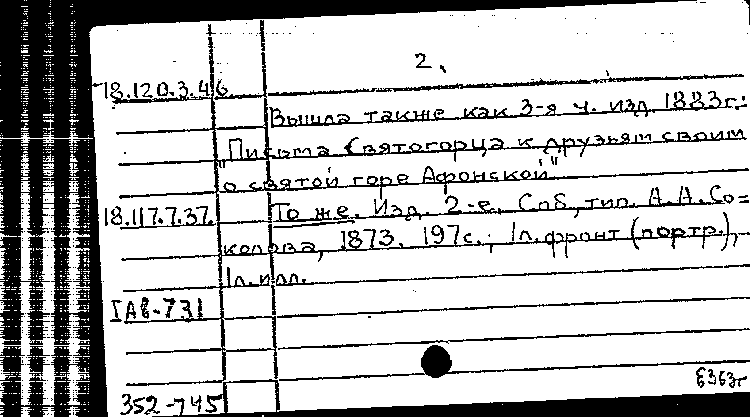 2.
18.120.3.46.
Вышла также как 3-я ч. изд. 1883г:
"Письма Святогорца к друзьям своим
о святой горе Афонской"
18.117.7.37. То же. Изд. 2-е. Спб, тип. А.А.Со=
колова, 1873. 197с.; 1л.фронт (портр.),
1л.илл.
IАв-731
352-745
6363г